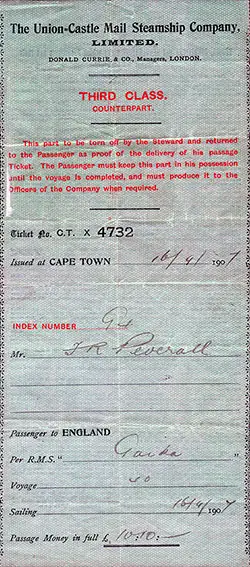 The Union-Castle Mail Steamship Company,
LIMITED.
DONALD CURRIE, & CO., Managers, LONDON.
THIRD CLASS.
COUNTERPART.
This part to be torn off by the Steward and returned
to the Passenger as proof of the delivery of his passage
Ticket. The Passenger must keep this part in his possession
until the voyage is completed, and must produce it to the
Officers of the Company when required.
Ticket No. C.T. X 4732
Issued at CAPE TOWN 16/4/1907
INDEX NUMBER
Mr. Peverall
Passenger to ENGLAND
Per R.M.S. " Gaika "
Voyage 40
Sailing 16/4/1907
Passage Money in full £ 10.10.-